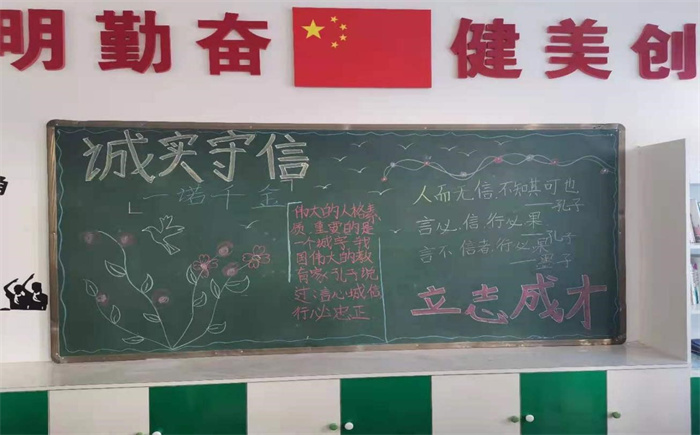 明勤奋
健美创
诚实守信
一诺千金
伟大的人格素
质,重要的是
一个诚字,我
国伟大的教
育家孔子说
过:言必诚信
行必忠正
人而无信,不知其可也
——孔子
言必,信,行必果
——孔子
言不信者,行必果
——墨子
立志成才